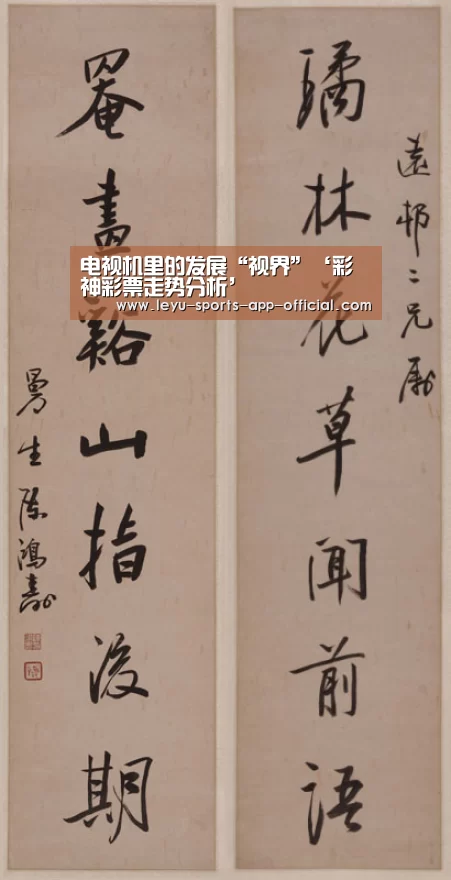 遠邨二兄屬
璚林花草聞前語
罨畫谿山指後期
曼生陳鴻壽
电视机里的发展“视界”‘彩
神彩票走势分析’
www.leyu-sports-app-official.com